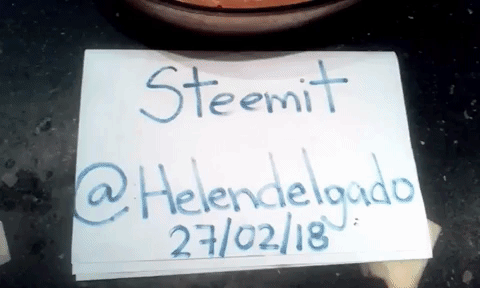 Steemit
@Helendelgado
27/02/18